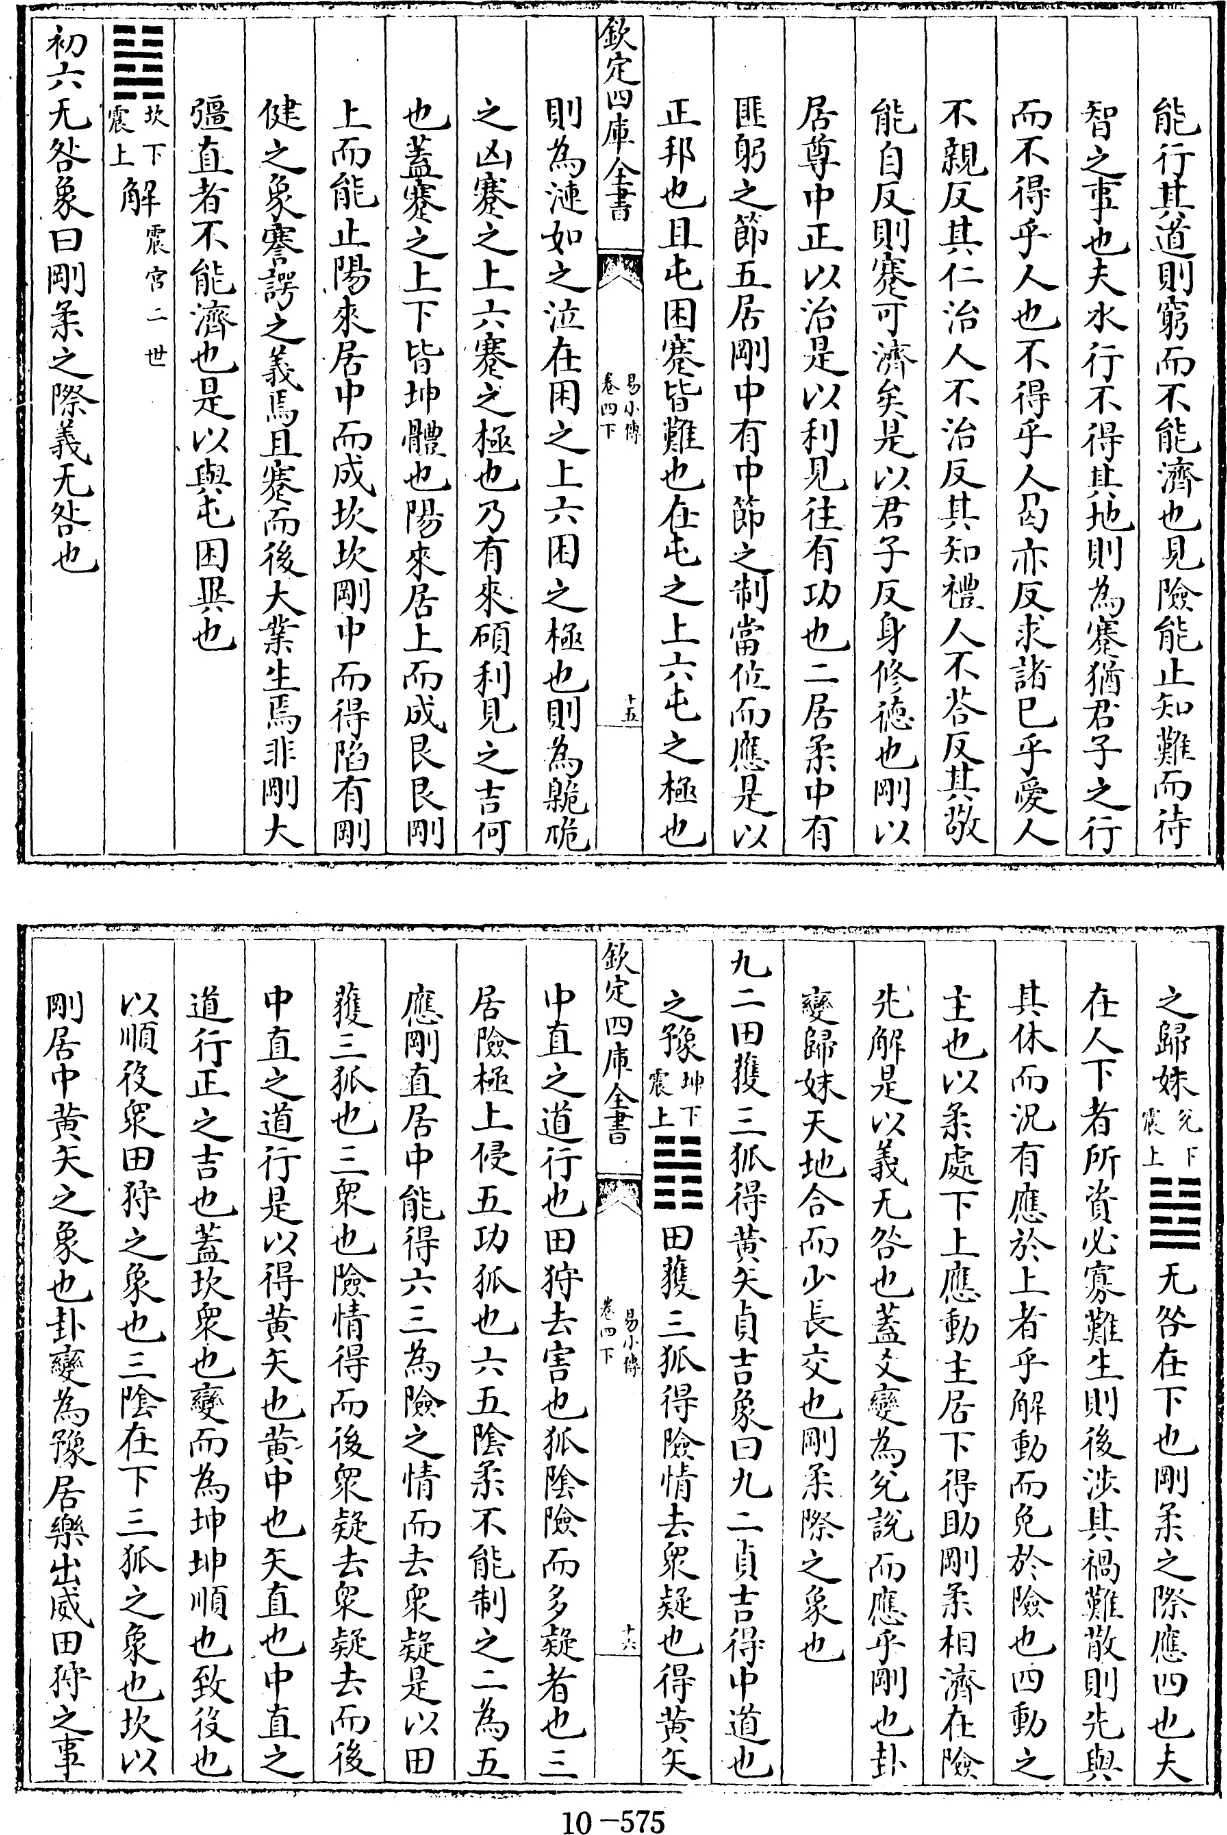 能行其道則窮而不能濟也見險能止知難而待
智之事也夫水行不得其地則為蹇猶君子之行
而不得乎人也不得乎人曷亦反求諸已乎愛人
不親反其仁治人不治反其知禮人不荅反其敬
能自反則蹇可濟矣是以君子反身修德也剛以
居尊中正以治是以利見往有功也二居柔中有
匪躬之節五居剛中有中節之制當位而應是以
正邦也且屯困蹇皆難也在屯之上六屯之極也
欽定四庫全書
易小傳
卷四下
十五
則為漣如之泣在困之上六困之極也則為臲卼
之凶蹇之上六蹇之極也乃有來碩利見之吉何
也蓋蹇之上下皆坤體也陽來居上而成艮艮剛
上而能止陽來居中而成坎坎剛中而得陷有剛
健之象謇諤之義焉且蹇而後大業生焉非剛大
彊直者不能濟也是以與屯困異也
䷧坎下震上解震宮二世
初六无咎象曰剛柔之際義无咎也
之歸妹兌下震上䷵无咎在下也剛柔之際應四也夫
在人下者所資必寡難生則後涉其禍難散則先與
其休而況有應於上者乎解動而免於險也四動之
主也以柔處下上應動主居下得助剛柔相濟在險
先解是以義无咎也蓋爻變為兌說而應乎剛也卦
變歸妹天地合而少長交也剛柔際之象也
九二田獲三狐得黃矢貞吉象曰九二貞吉得中道也
之豫坤下震上䷏田獲三狐得險情去眾疑也得黃矢
欽定四庫全書
易小傳
卷四下
十六
中直之道行也田狩去害也狐陰險而多疑者也三
居險極上侵五功狐也六五陰柔不能制之二為五
應剛直居中能得六三為險之情而去眾疑是以田
獲三狐也三眾也險情得而後眾疑去眾疑去而後
中直之道行是以得黃矢也黃中也矢直也中直之
道行正之吉也蓋坎眾也變而為坤坤順也致役也
以順役眾田狩之象也三陰在下三狐之象也坎以
剛居中黃矢之象也卦變為豫居樂出威田狩之事
10-575